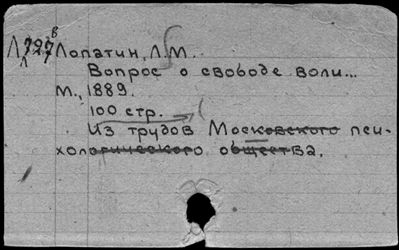 Л727 Лопатин, Л.М.
Вопрос о свободе воли...
М., 1889.
100 стр. —
Из трудов Московского пси-
хологического общества.